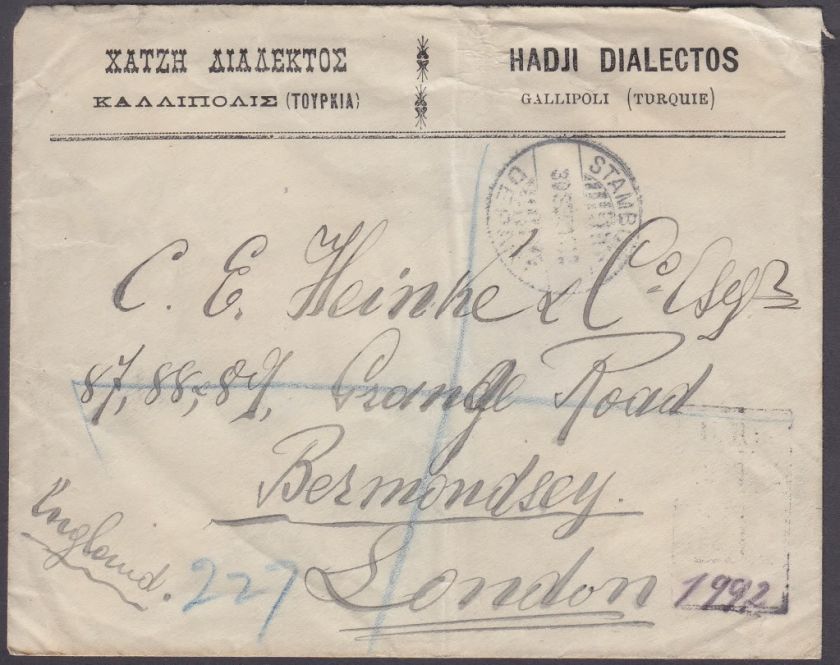 ΧΑΤΖΗ ΔΙΑΛΕΚΤΟΣ
ΚΑΛΛΙΠΟΛΙΣ (ΤΟΥΡΚΙΑ)
HADJI DIALECTOS
GALLIPOLI (TURQUIE)
STAMBOUL
C. E. Heinke & Co. Esqrs
87, 88, 89, Grange Road
Bermondsey.
London
England.
227
1992